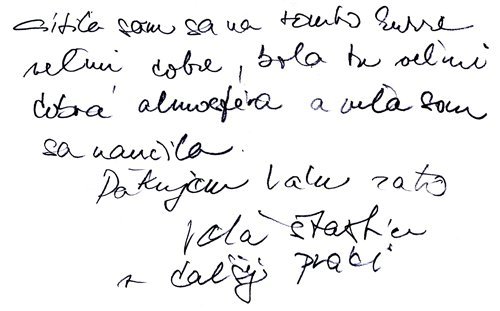 cítila som sa na tomto kurze
veľmi dobre, bola tu veľmi
dobrá atmosféra a veľa som
sa naučila.
Ďakujem Vám za to
Veľa šťastia
v ďalšej práci